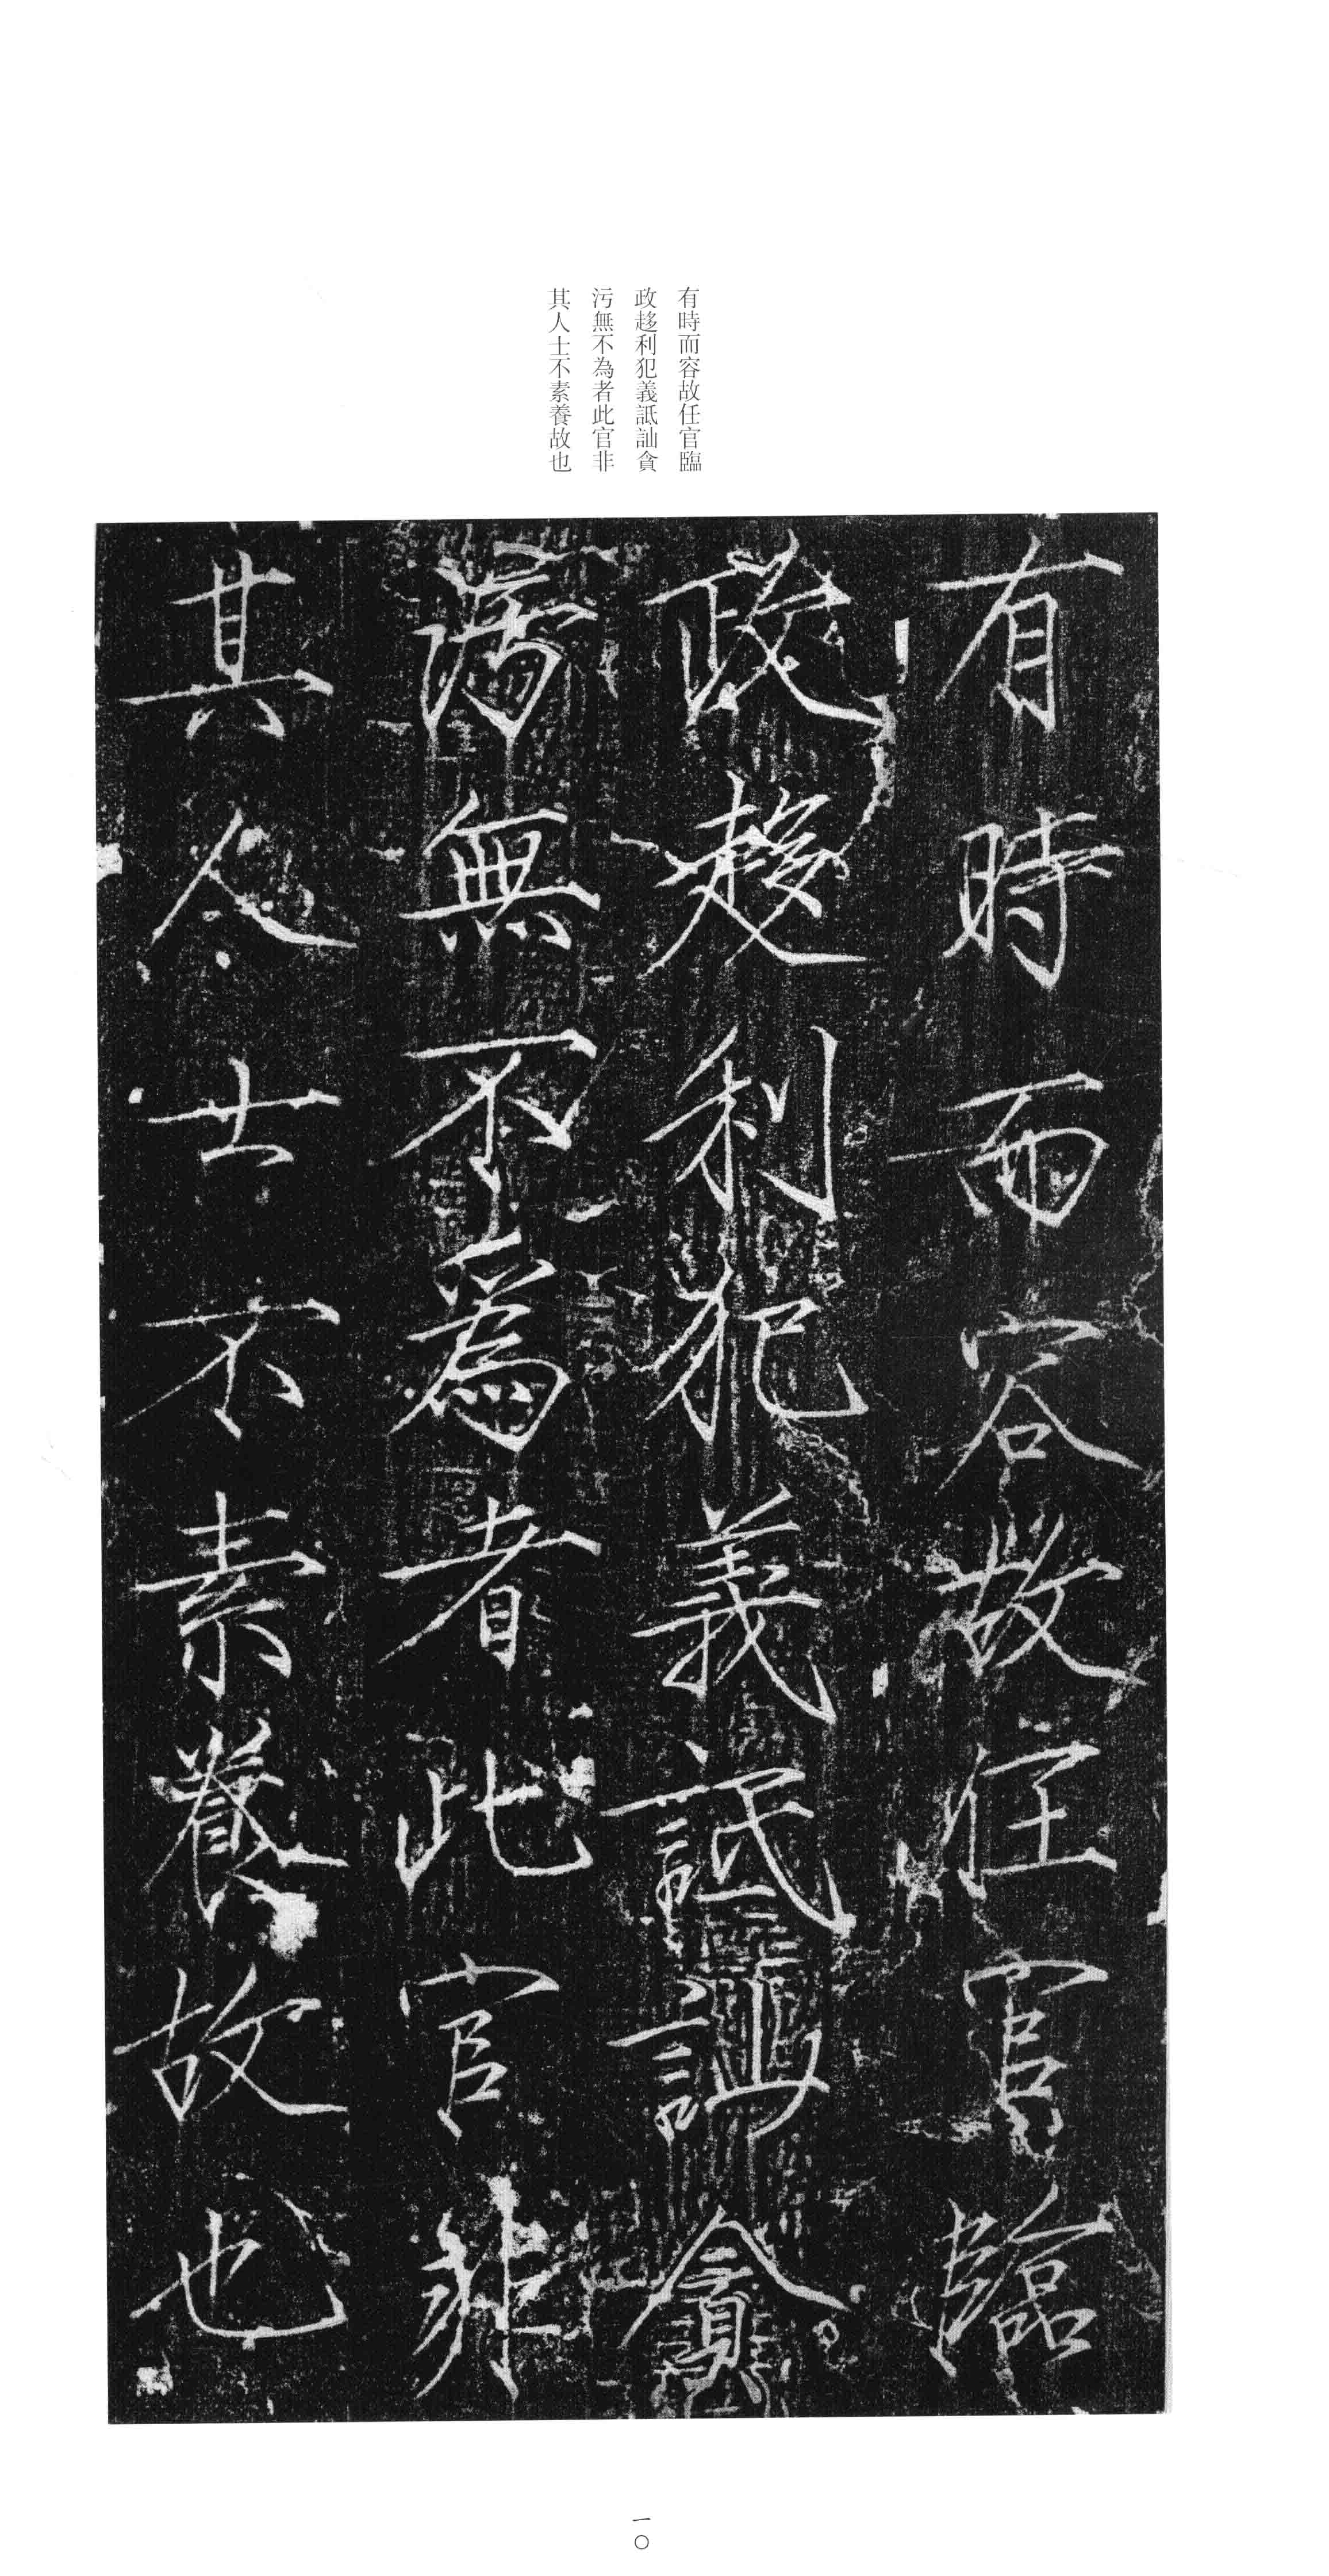 有時而容故任官臨
政趍利犯義詆訕貪
污無不為者此官非
其人士不素養故也
有時而容故任官臨
政趍利犯義詆訕貪
污無不為者此官非
其人士不素養故也
一〇